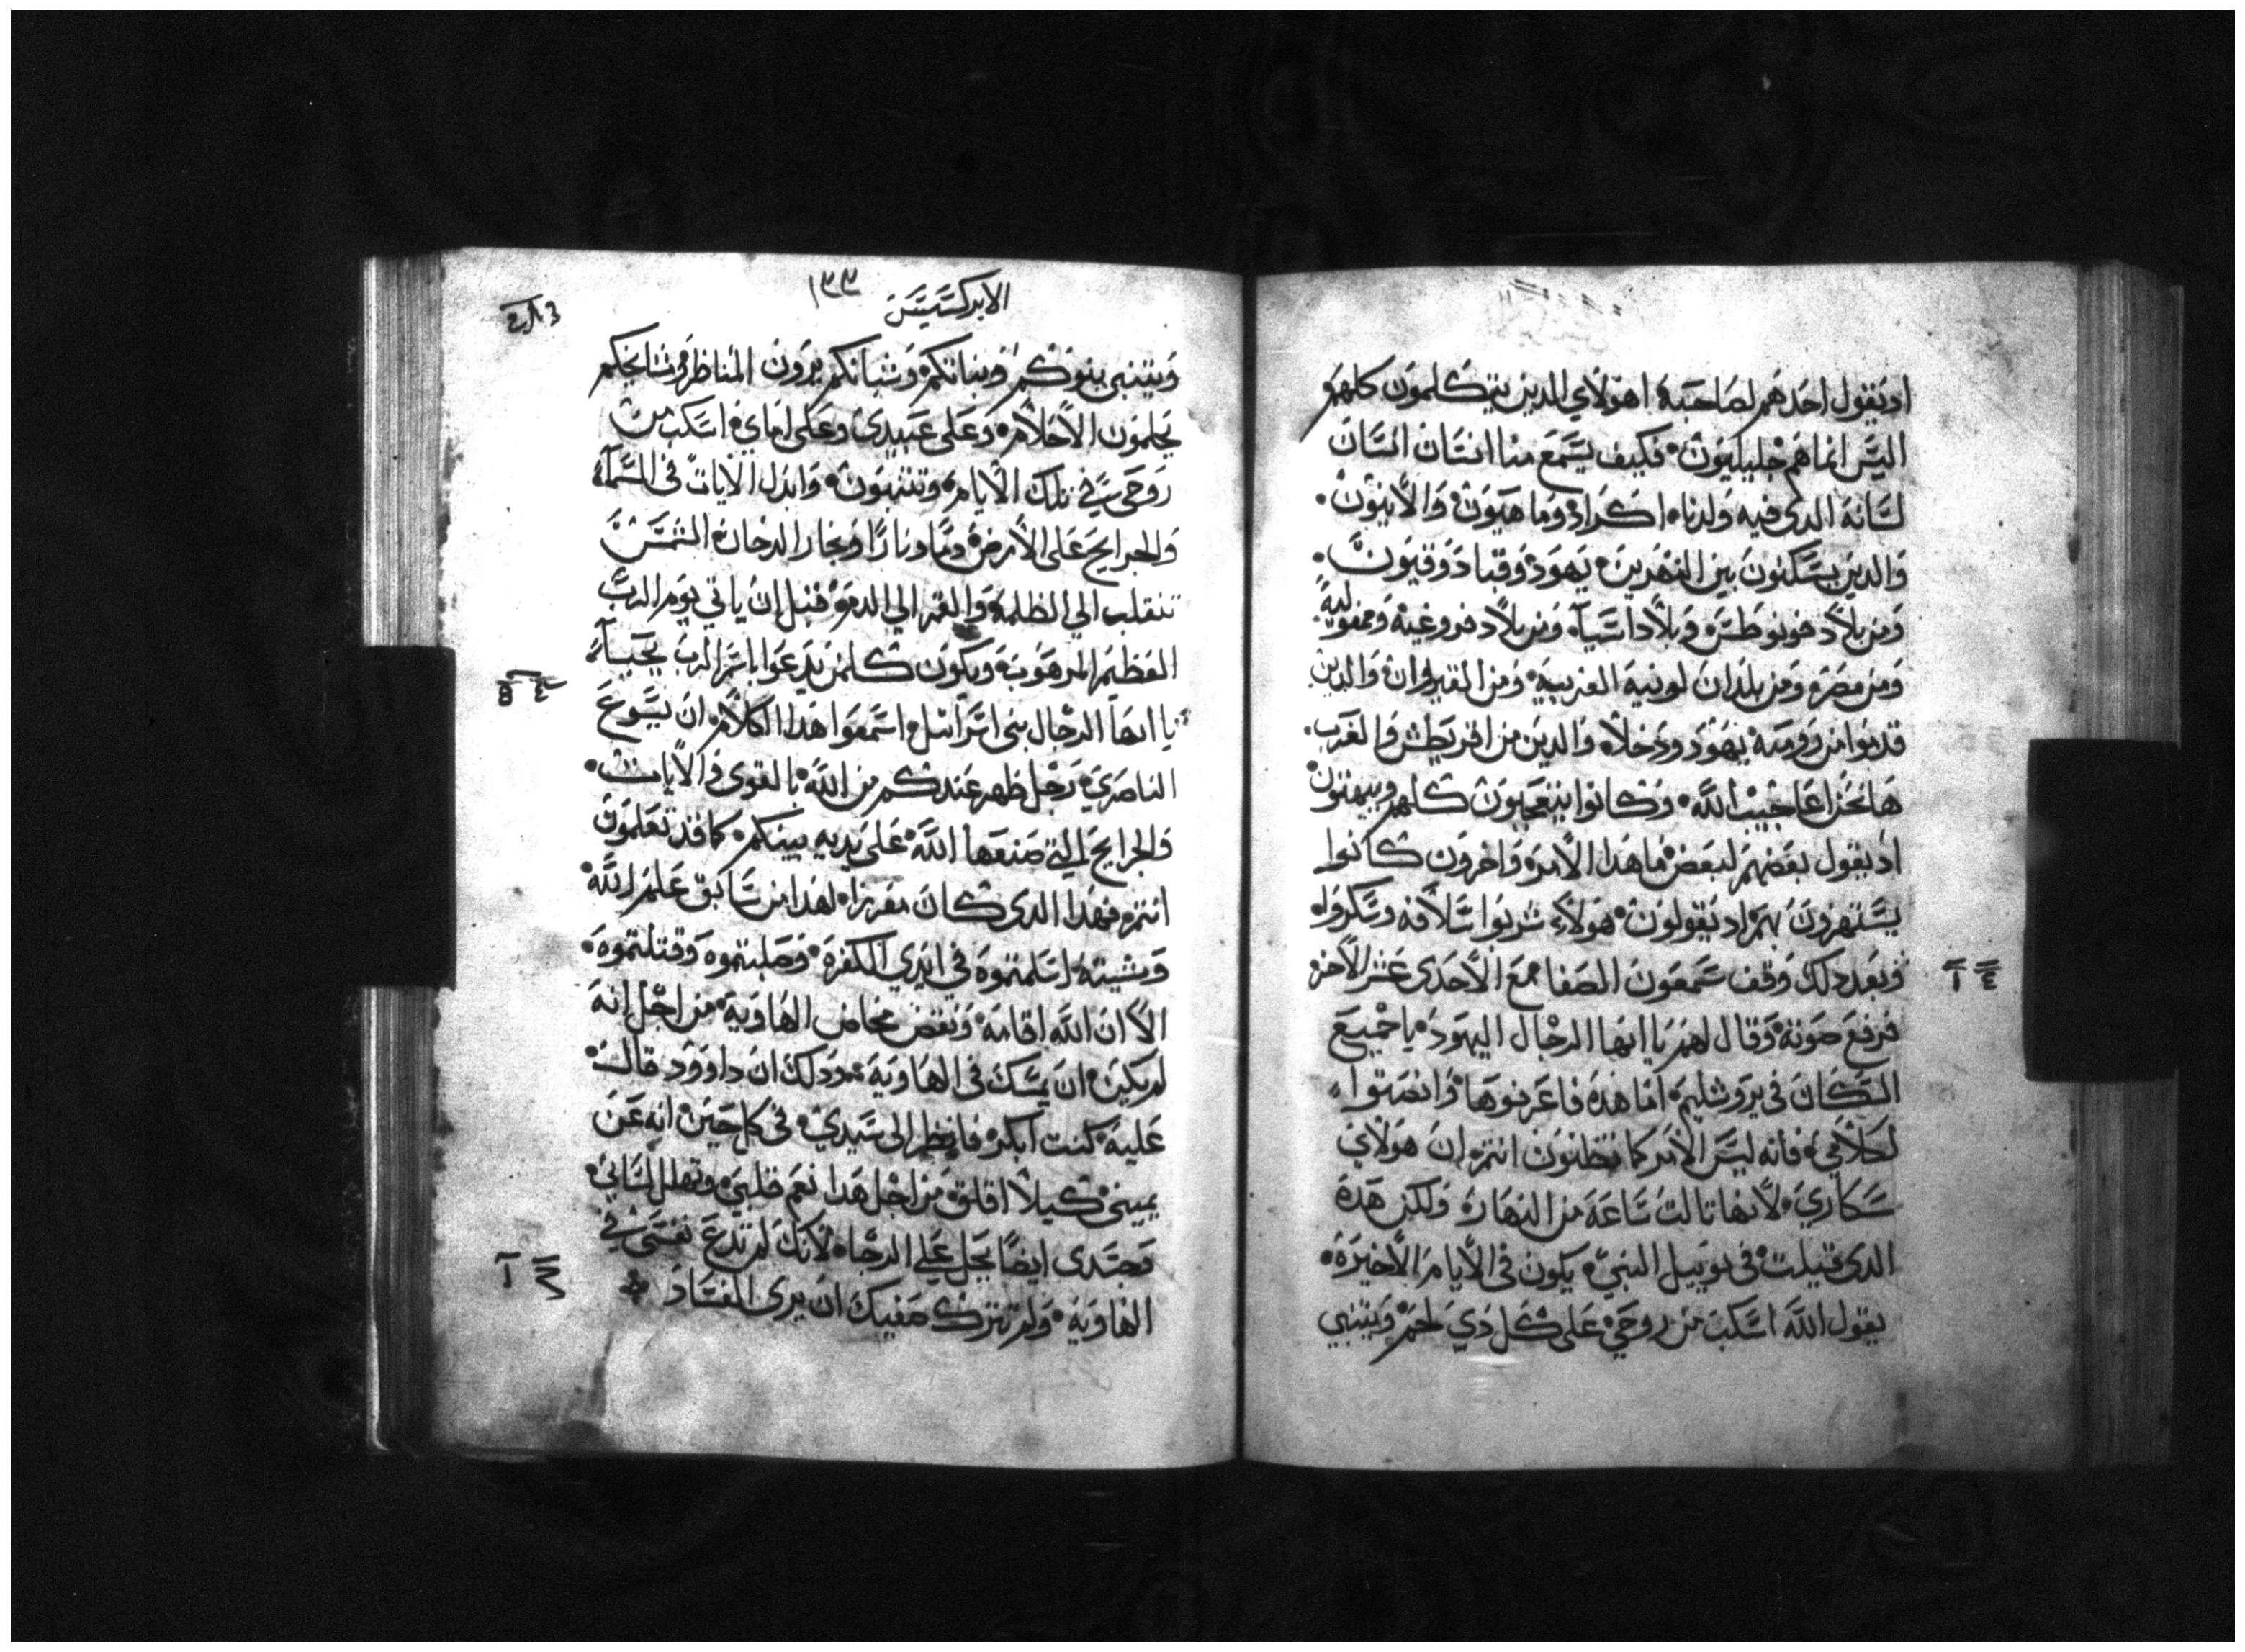 اد يقول احدهم لصاحبه اهولاي الدين يتكلمون كلهم
اليس انما هم جليليون فكيف يسمع منا انسان انسان
لسانه الدي فيه ولدنا اكراد وماهيون والانيون
والدين يسكنون بين النهرين يهود وقبادوقيون
ومن بلاد فونوطس وبلاد اسيا ومن بلاد فروغيه ومفوليه
ومن مصر ومن بلدان لوبيه القريبه ومن القيروان والدين
قدموا من روميه يهود ودخلا والدين من اقريطش والعرب
ها نحن اعاجيب الله وكانوا يتعجبون كلهم ويبهتون
اد يقول بعضهم لبعض ما هدا الامر واخرون كانوا
يستهزون بهم اد يقولون هولاء شربوا سلافه وسكروا
وبعد دلك وقف سمعون الصفا مع الاحدى عشر الاخر
٤ ١
فرفع صوته وقال لهم يا ايها الرجال اليهود يا جميع
السكان في يروشليم اما هده فاعرفوها وانصتوا
لكلامي فانه ليس الامر كما تظنون انتم ان هولاي
سكاري لانها تالت ساعه من النهار ولكن هده
الدى قيلت في يوييل النبي يكون في الايام الاخيره
يقول الله اسكب من روحي على كل دي لحم ويتنبى
الابركسيس ١٣٣
ويتنبى بنوكم وبناتكم وشبانكم يرون المناظر ومشايخكم
يحلمون الاحلام وعلى عبيدى وعلى اماي اسكب من
روحى في تلك الايام وتتنبون وابدل الايات في السماء
والجرايح على الارض دما ونارا وبخار الدخان الشمس
تنقلب الي الظلمه والقمر الي الدم قبل ان ياتي يوم الرب
العظيم المرهوب ويكون كلمن يدعوا باسم الرب يحيا
٤ ٥
يا ايها الرجال بنى اسراييل اسمعوا هدا الكلام ان يسوع
الناصري رجل ظهر عندكم من الله بالقوى والايات
والجرايح التي صنعها الله على يديه بينكم كما قد تعلمون
انتم فهدا الدى كان مفرزا لهدا من سابق علم الله
ومشيته اسلمتموه في ايدي الكفره وصلبتموه وقتلتموه
الا ان الله اقامه ونقض مخاض الهاويه من اجل انه
لم يكن ان يمسك في الهاويه ودلك ان داوود قال
عليه كنت ابكر فانظر الى سيدي في كل حين انه عن
يمينى كيلا اقلق من اجل هدا نعم قلبي وتهلل لساني
وجسدى ايضا يحل علي الرجا لانك لم تدع نفسى في
الهاويه ولم تترك صفيك ان يرى الفساد